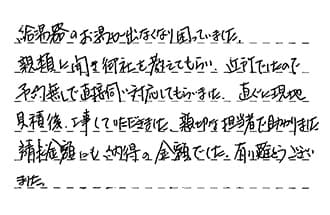 給湯器のお湯が出なくなり困っていました。
親類に聞き何社も教えてもらい、近所でしたので
予約無しで直接伺い対応してもらいました。直ぐに現地
見積後、工事して頂きました。親切な担当者で助かりました
請求金額にも納得の金額でした。有り難とうござい
ました。